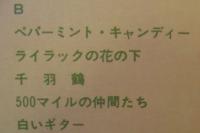 B
ペパーミント・キャンディー
ライラックの花の下
千羽鶴
500マイルの仲間たち
白いギター